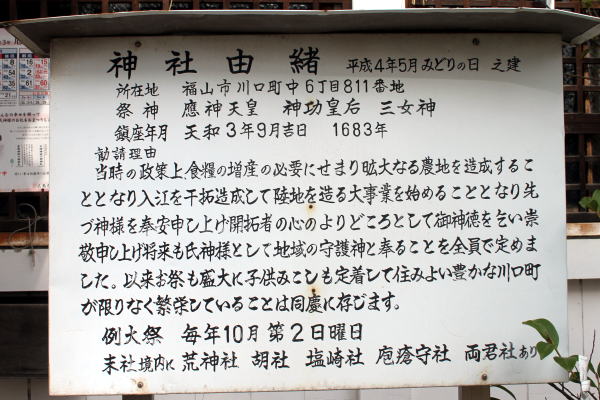 神社由緒 平成4年5月みどりの日 之建
所在地 福山市川口町中6丁目811番地
祭神 應神天皇 神功皇后 三女神
鎮座年月 天和3年9月吉日 1683年
勧請理由
当時の政策上、食糧の増産の必要にせまり広大なる農地を造成するこ
ととなり入江を干拓造成して陸地を造る大事業を始めることとなり先
づ神様を奉安申し上げ開拓者の心のよりどころとして御神徳を乞い崇
敬申し上げ将来も氏神様として地域の守護神と奉ることを全員で定めま
した。以来お祭も盛大に子供みこしも定着して住みよい豊かな川口町
が限りなく繁栄していることは同慶に存じます。
例大祭 毎年10月第2日曜日
末社境内に荒神社 胡社 塩崎社 疱瘡守社 両君社あり